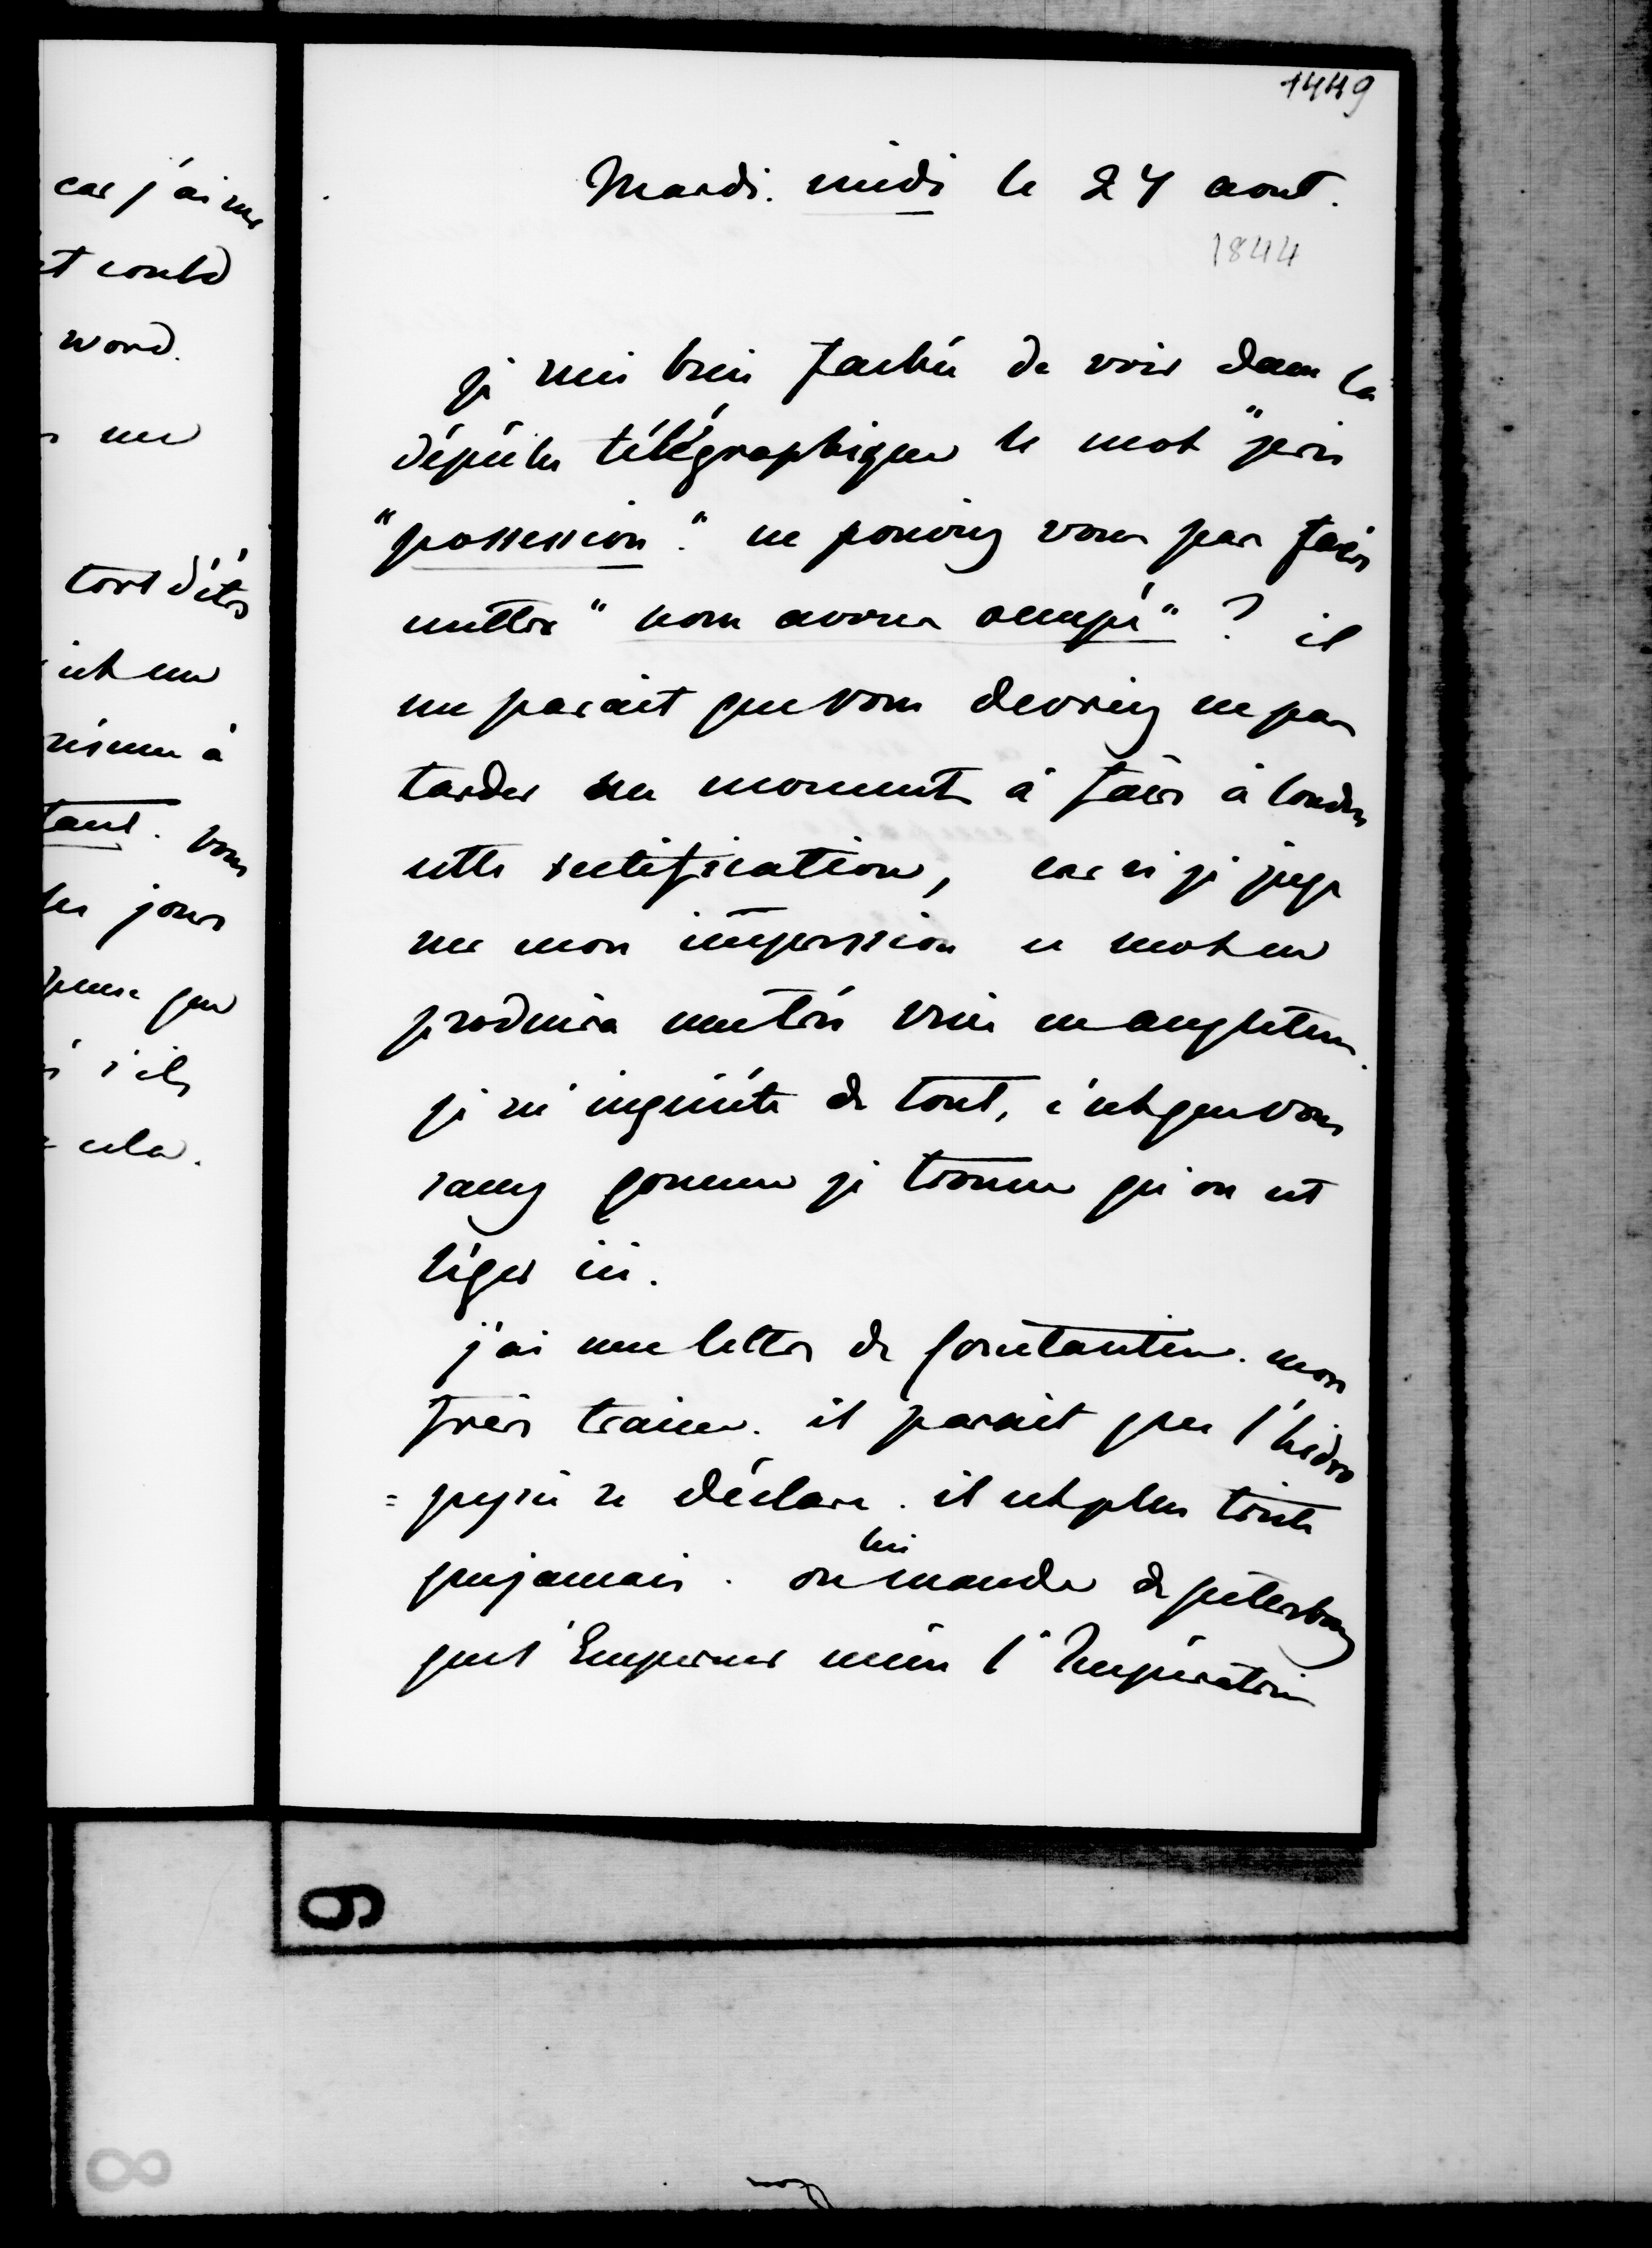 1449
Mardi. midi le 27 aout.
1844
je suis bien fachée de voir dans la
dépêche télégraphique le mot "pris
"possession." ne pouviez vous pas faire
mettre "nous avons occupé"? il
me parait que vous devriez ne pas
tarder un moment à faire à Londres
cette rectification, car si je juge
sur mon impression ce mot en
produira une très vive en angleterre.
je m'inquiète de tout, c'est que vous
savez comme je trouve qu'on est
léger ici.
j'ai une lettre de Constantin. mon
frère traine. il parait que l'hidro
=pysie se déclare. il est plus triste
que jamais. on lui mande de petersbourg
que l'Empereur mène l'Impératrice
car j'aime
t could
word.
tort d'être
est une
résume à
tant. vous
les jours
pense que
s'ils
cela.
9
8